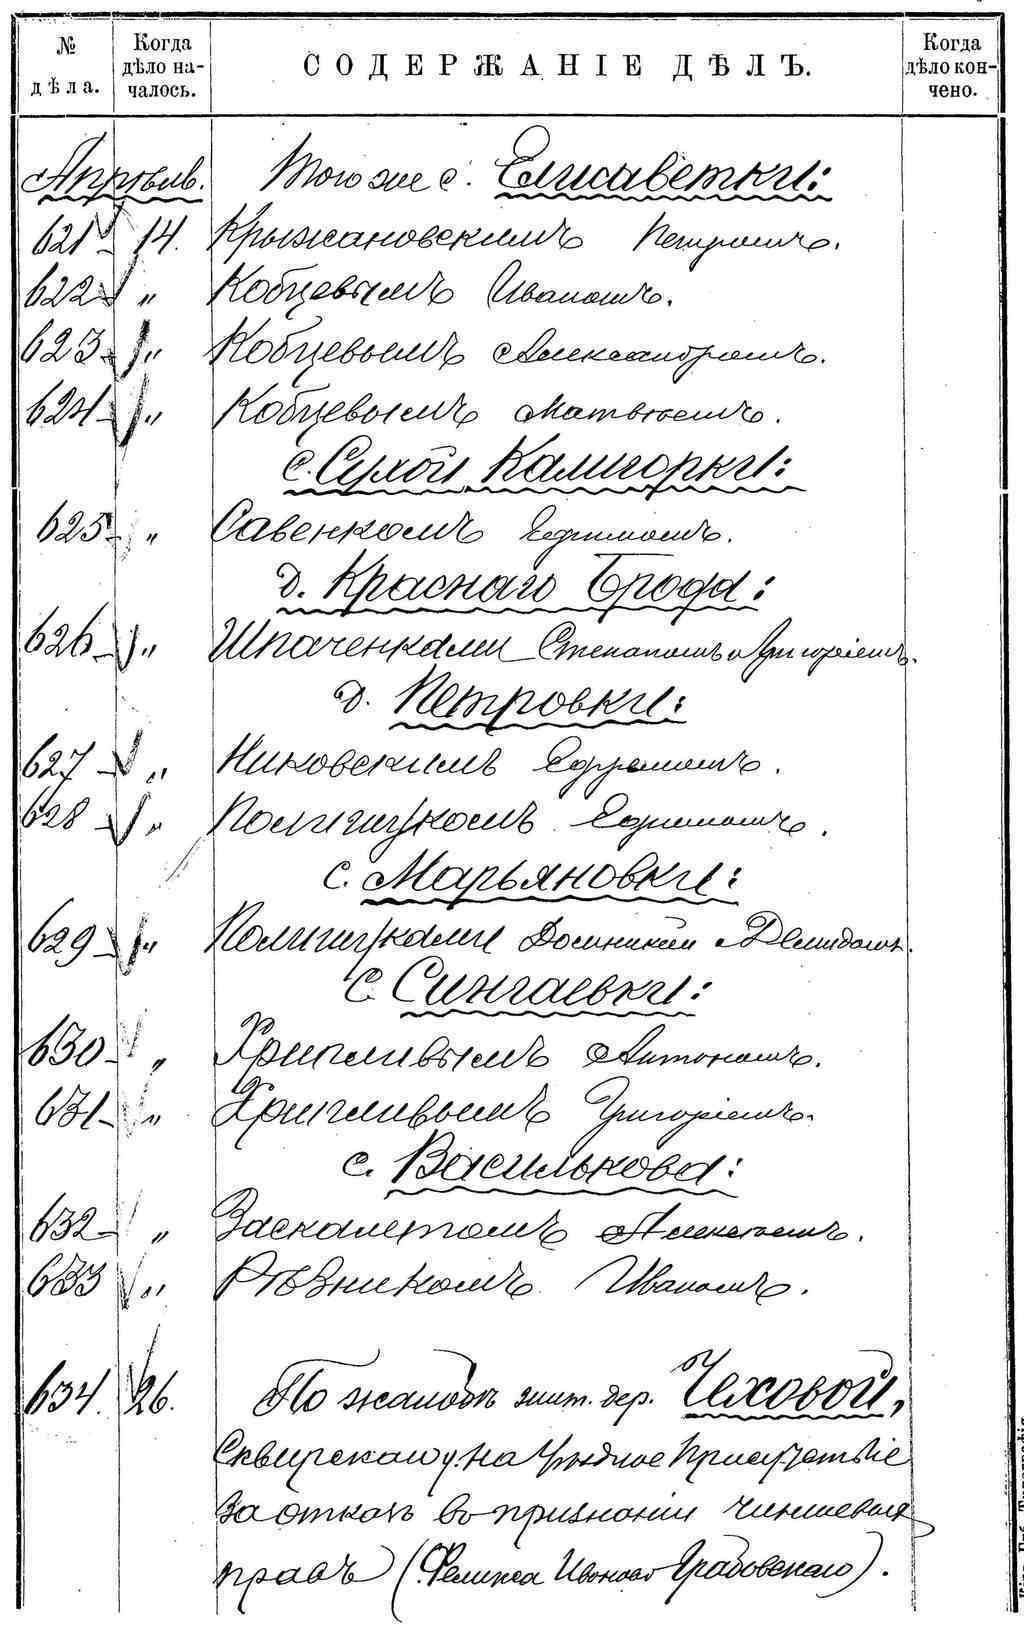 № дѣла.
Когда дѣло на-
чалось.
СОДЕРЖАНІЕ ДѢЛЪ.
Когда дѣло кон-
чено.
Апрѣль. Того же с. Елисаветки:
621 14. Крыжановскимъ Петромъ.
622 " Кобцевымъ Иваномъ.
623 " Кобцевымъ Александромъ.
624 " Кобцевымъ Матвѣемъ.
с. Сухой Калигорки:
625 " Савенкомъ Ефимомъ.
д. Краснаго Брода:
626 " Шпаченками Степаномъ и Григоріемъ.
д. Петровки:
627 " Никовскимъ Ефремомъ.
628 " Полищукомъ Ефимомъ.
с. Марьяновки:
629 " Полищуками Домникіи Демидомъ.
с. Сингаевки:
630 " Хрипливымъ Антономъ.
631 " Хрипливымъ Григоріемъ.
с. Василькова:
632 " Заскалетомъ Алексѣемъ.
633 " Рѣзникомъ Иваномъ.
634. 26. По жалобѣ жит. дер. Чеховой,
Сквирскаго у. на Уѣздное Присутствіе
за отказъ въ признаніи чиншевыхъ
правъ (Феликса Иванова Грабовскаго).